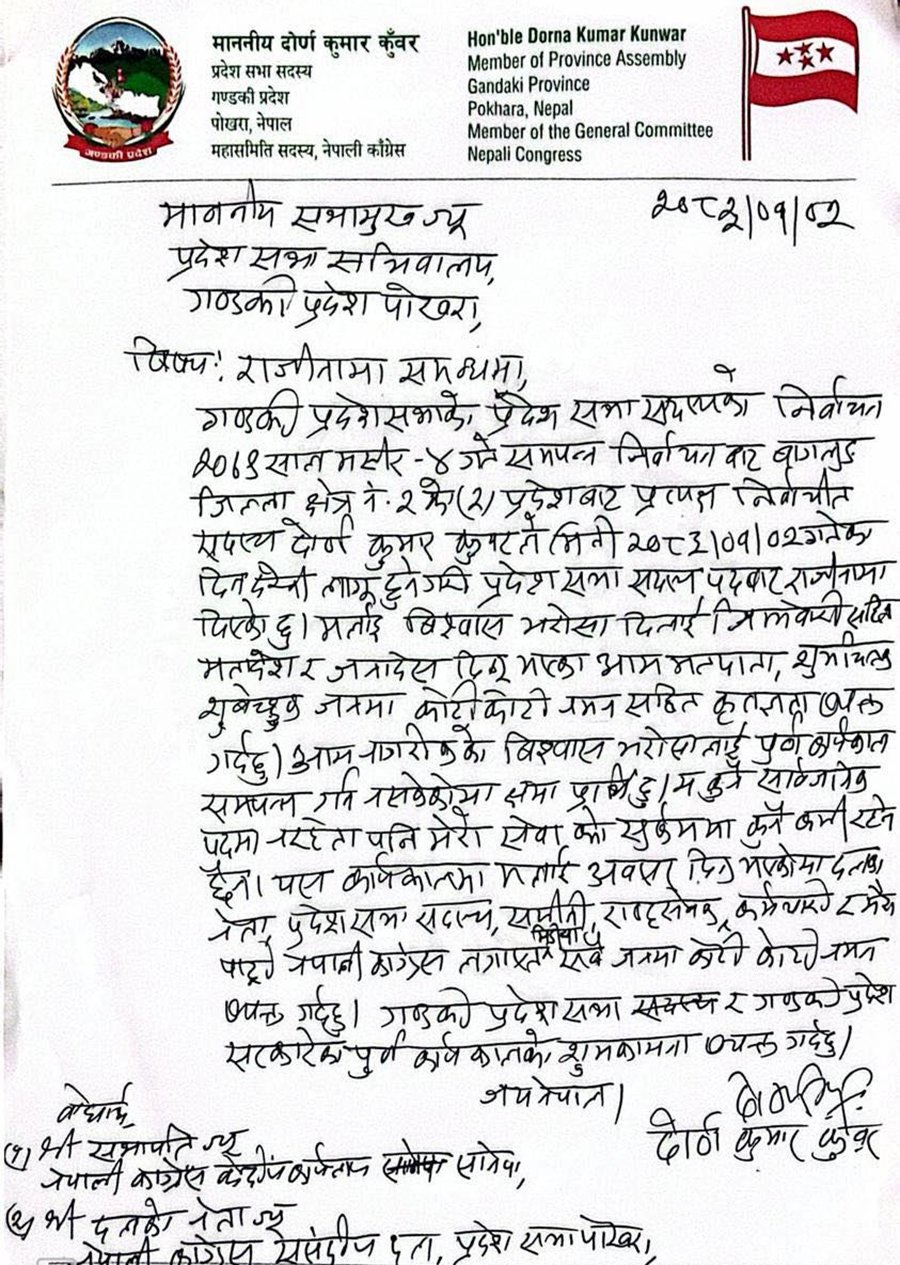 माननीय दोर्ण कुमार कुँवर
प्रदेश सभा सदस्य
गण्डकी प्रदेश
पोखरा, नेपाल
महासमिति सदस्य, नेपाली काँग्रेस
Hon'ble Dorna Kumar Kunwar
Member of Province Assembly
Gandaki Province
Pokhara, Nepal
Member of the General Committee
Nepali Congress
गण्डकी प्रदेश
२०८३/०१/०२
माननीय सभामुख ज्यू
प्रदेश सभा सचिवालय,
गण्डकी प्रदेश पोखरा,
विषय: राजीनामा सम्बन्धमा,
गण्डकी प्रदेशसभाको प्रदेश सभा सदस्यको निर्वाचन
२०७९ साल मंसीर-४ गते सम्पन्न निर्वाचन बाट बागलुङ
जिल्ला क्षेत्र नं. २ को (२) प्रदेशबाट प्रत्यक्ष निर्वाचीत
सदस्य दोर्ण कुमार कुवरले मिती २०८३/०१/०२ गतेका
दिन देखी लागू हुनेगरी प्रदेश सभा सदस्य पदबाट राजीनामा
दिएको छु। मलाई बिश्वास भरोसा दिलाई सहित
मतादेश र जनादेस दिनु भएका आम मतदाता, शुभचिन्तक
शुवेच्छुक जनमा कोटी कोटी नमन सहित कृतज्ञता व्यक्त
गर्दछु। आम नागरीकको बिश्वास भरोसा लाई पुर्ण कार्यकाल
सम्पन्न गर्न नसकेकोमा क्षमा प्रार्थि छु। म कुनै सार्वजनिक
पदमा नरहेता पनि मेरो सेवा को सुर्कममा कुनै कमी रहने
छैन। यस कार्यकालमा मलाई अवसर दिनु भएकोमा दलका
नेता, प्रदेश सभा सदस्य, समीती, राष्ट्रसेवक, कर्मचारी र मेरो
पार्टी नेपाली कांग्रेस लगायत मिडिया सबै जनमा कोटी कोटी नमन
व्यक्त गर्दछु। गण्डकी प्रदेश सभा सदस्य र गण्डकी प्रदेश
सरकारको पुर्ण कार्य कालको शुभकामना व्यक्त गर्दछु।
जय नेपाल।
दोर्ण कुमार कुँवर
बोधार्थ,
(१) श्री सभापति ज्यू
नेपाली कांग्रेस केन्द्रीय कार्यालय सानेपा,
(२) श्री दलको नेता ज्यू
नेपाली कांग्रेस संसदीय दल, प्रदेश सभा पोखरा,